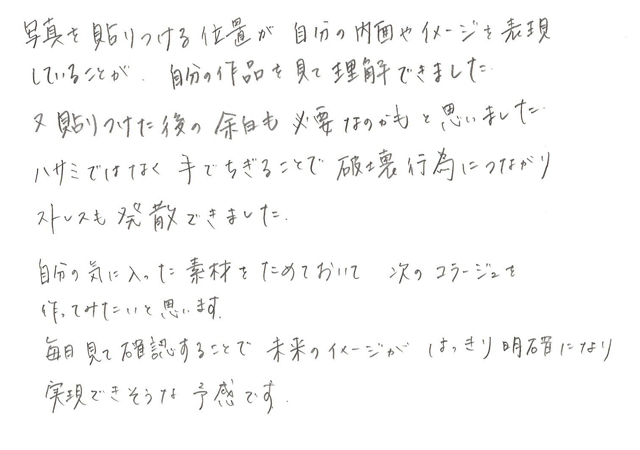 写真を貼りつける位置が 自分の内面やイメージを表現
していることが、自分の作品を見て理解できました.
又 貼りつけた後の余白も必要なのかもと思いました.
ハサミではなく手でちぎることで破壊行為につながり
ストレスも発散できました.
自分の気に入った素材をためておいて 次のコラージュを
作ってみたいと思います.
毎日見て確認することで 未来のイメージが はっきり明確になり
実現できそうな予感です.